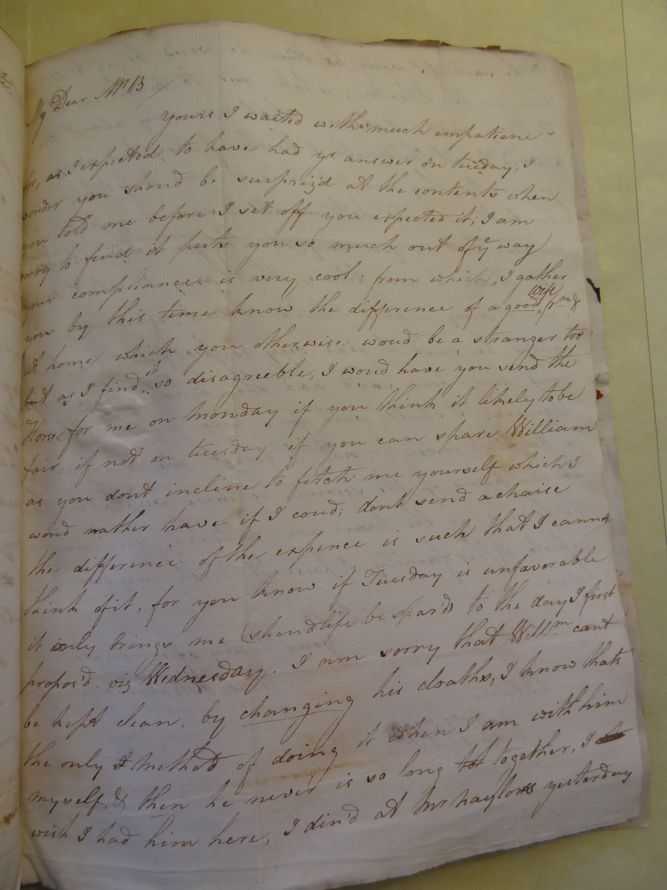 My Dear Mr B
yours I waited with much impatiene
for, as I expected to have had yr answer on tuesday, I
wonder you shoud be surprizd at the contents when
you told me before I set off you expected it; I am
sorry to find it puts you so much out of yr way
your compliance is very cool; from which, I gather
you by this time know the difference of a good wife frm &
at home which you otherwise woud be a stranger to
but as I find it so disagreeble, I woud have you send the
Horse for me on Monday if you think it likely to be
fair if not on tuesday if you can spare William
as you dont incline to fetch me yourself which I
woud rather have if I coud; dont send a chaise
the difference of the expence is such that I cannot
think of it, for you know if Tuesday is unfavorable
it only brings me (shoud life be spar'd) to the day I first
propos'd. viz Wednesday. I am sorry that Willm cant
be kept clean. by changing his cloaths, I know thats
the only Method of doing it when I am with him
myself, & then he never is so long together, I
wish I had him here, I din'd at Mr haylors yesterday